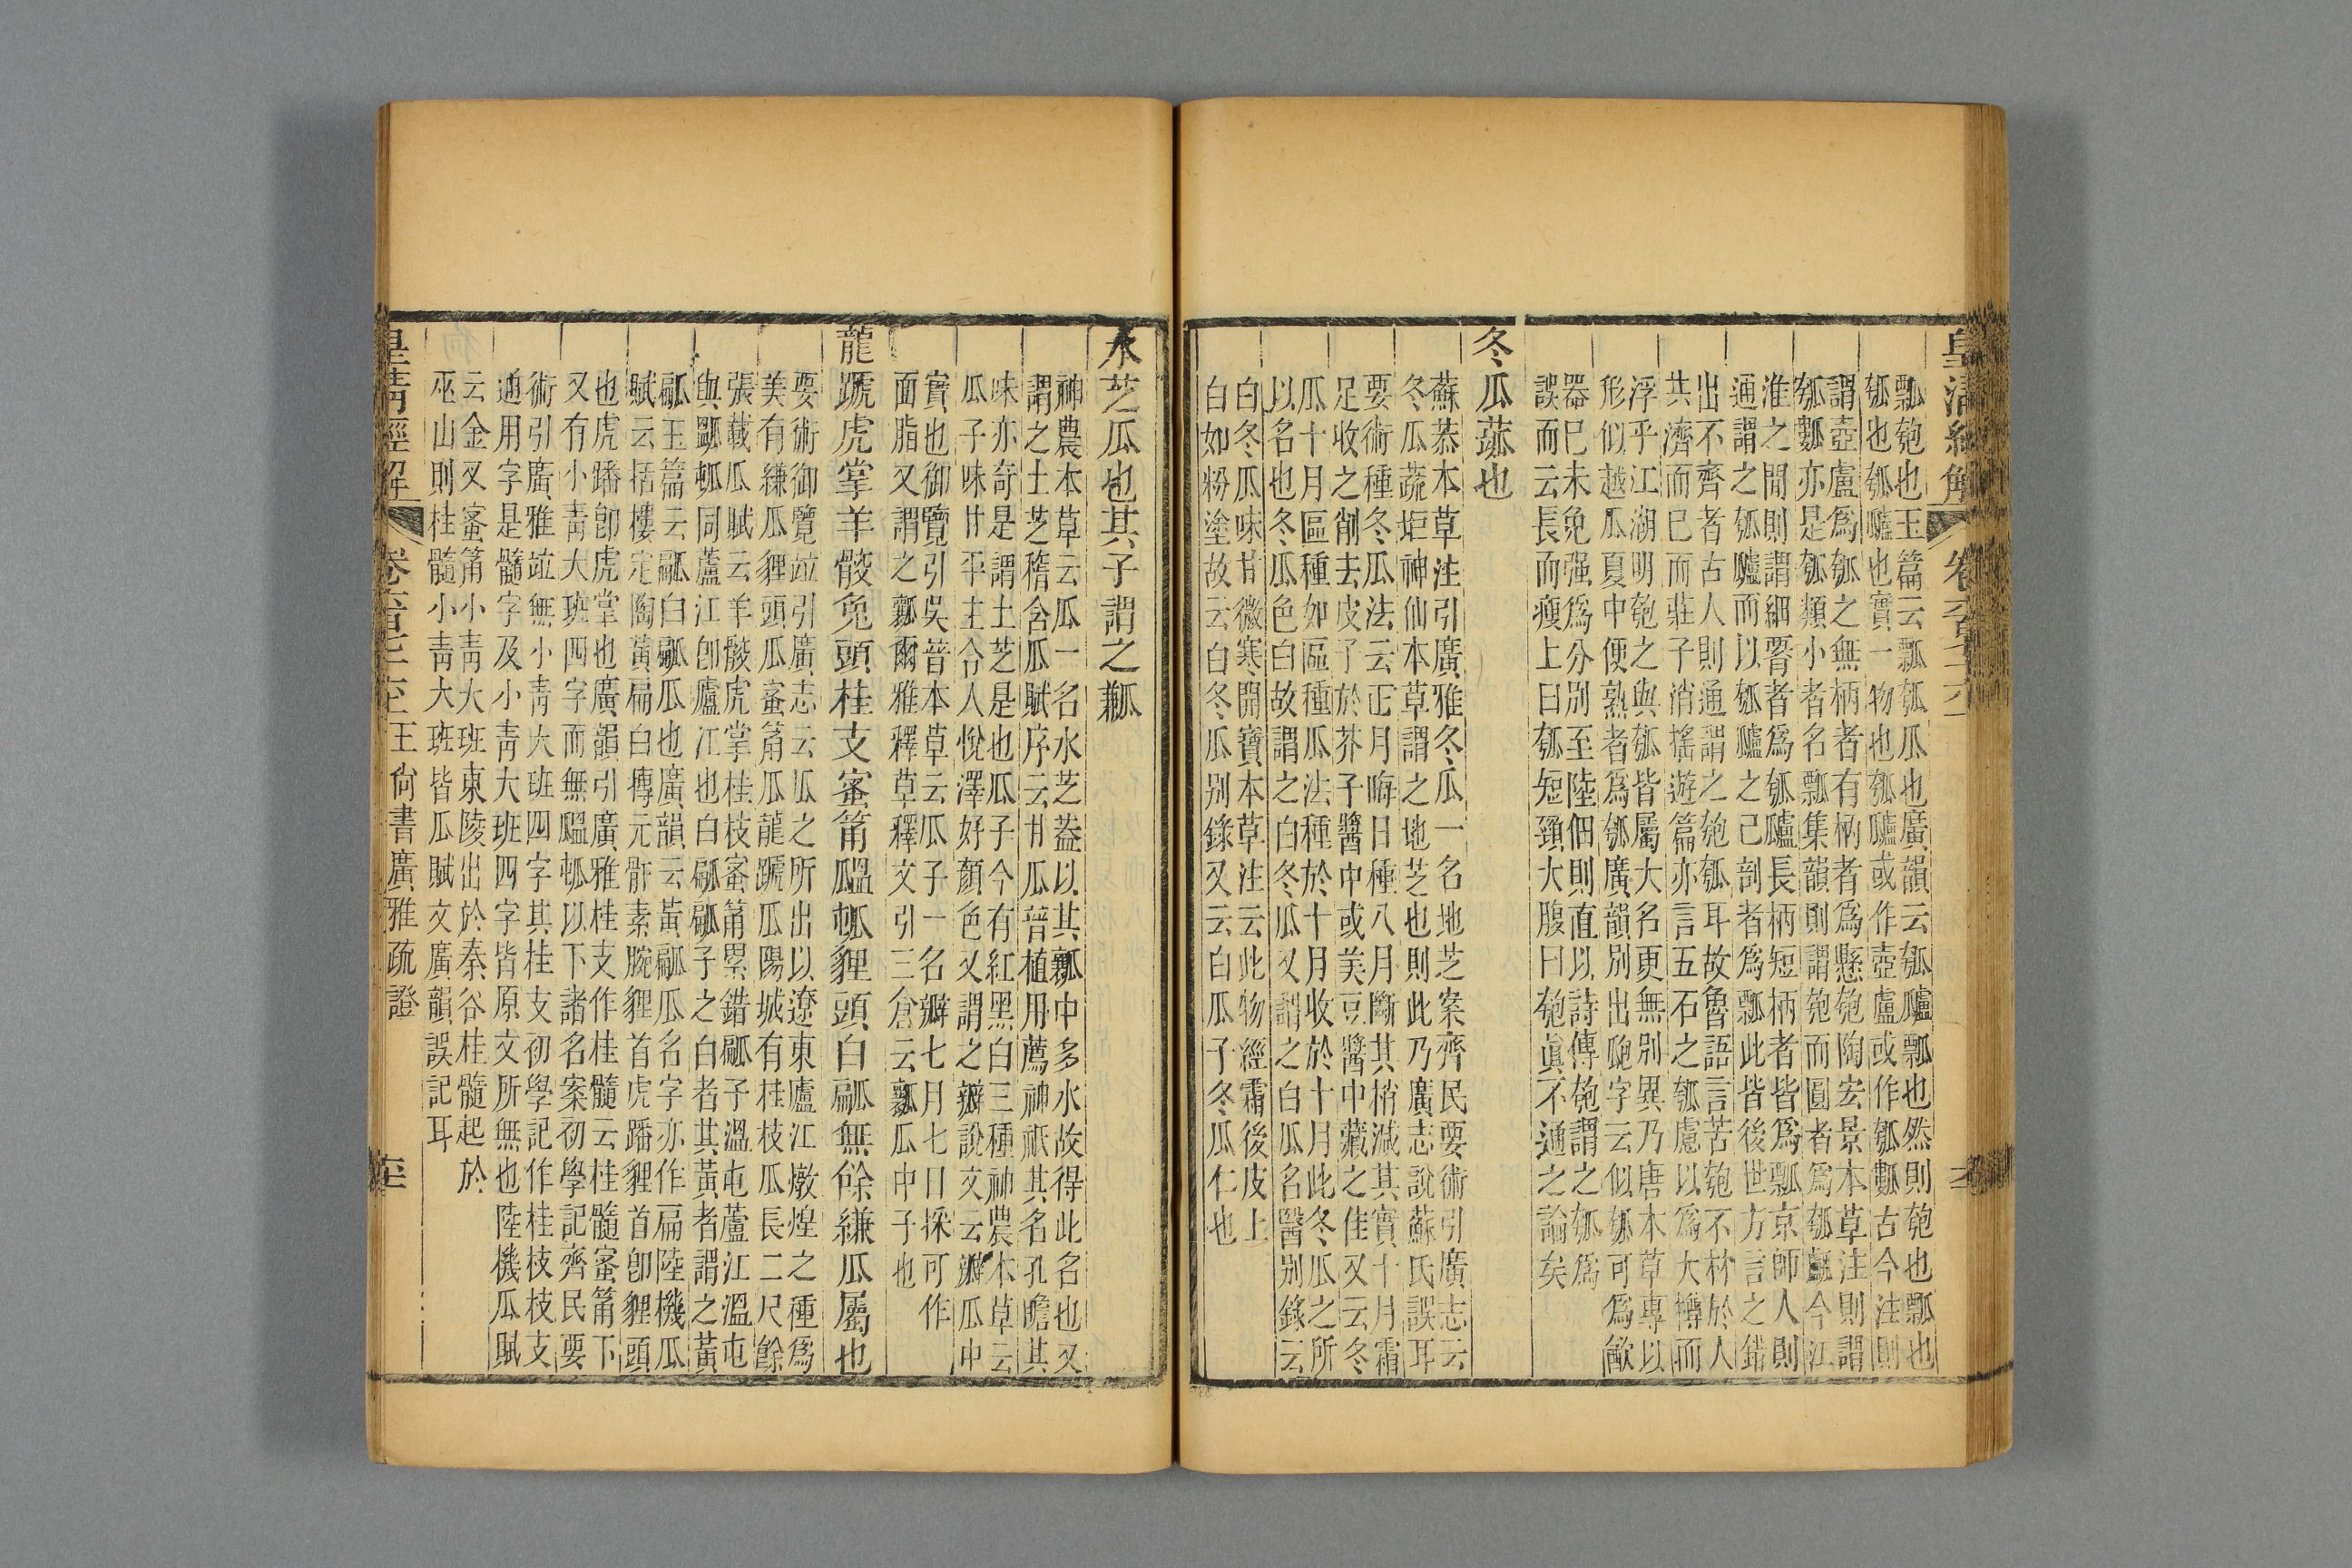 皇清經解
瓢匏也玉篇云瓢瓠瓜也廣韻云瓠𤬛瓢也然則匏也瓢也
瓠也瓠𤬛也實一物也瓠𤬛或作壺盧或作瓠㼖古今注則
謂壺盧爲瓠之無柄者有柄者爲懸匏陶宏景本草注則謂
瓠㼖亦是瓠類小者名瓢集韻則謂匏而圓者爲瓠𤬛今江
淮之閒則謂細䏶者爲瓠𤬛長柄短柄者皆爲瓢京師人則
通謂之瓠𤬛而以瓠𤬛之已剖者爲瓢此皆後世方言之錯
出不齊者古人則通謂之匏瓠耳故魯語言苦匏不材於人
共濟而已而莊子消搖遊篇亦言五石之瓠慮以爲大樽而
浮乎江湖明匏之與瓠皆屬大名更無別異乃唐本草專以
形似越瓜夏中便熟者爲瓠廣韻別出㼐字云似瓠可爲歠
器已未免强爲分別至陸佃則直以詩傳匏謂之瓠爲
誤而云長而瘦上曰瓠短頸大腹曰匏眞不通之論矣
冬瓜䓌也
蘇恭本草注引廣雅冬瓜一名地芝案齊民要術引廣志云
冬瓜蔬㘸神仙本草謂之地芝也則此乃廣志說蘇氏誤耳
要術種冬瓜法云正月晦日種八月斷其梢減其實十月霜
足收之削去皮子於芥子醬中或美豆醬中藏之佳又云冬
瓜十月區種如區種瓜法種於十月收於十月此冬瓜之所
以名也冬瓜色白故謂之白冬瓜又謂之白瓜名醫別錄云
白冬瓜味甘微寒開寶本草注云此物經霜後皮上
白如粉塗故云白冬瓜別錄又云白瓜子冬瓜仁也
水芝瓜也其子謂之㼓
神農本草云瓜一名水芝葢以其瓤中多水故得此名也又
謂之土芝𥡴含瓜賦序云甘瓜普植用薦神祇其名孔瞻其
味亦奇是謂土芝是也瓜子今有紅黑白三種神農本草云
瓜子味甘平主令人悅澤好顏色又謂之瓣說文云瓣瓜中
實也御覽引吳普本草云瓜子一名瓣七月七日採可作
面脂又謂之瓤爾雅釋草釋文引三倉云瓤瓜中子也
龍蹏虎掌羊骹兔頭桂支蜜筩㼈㼌貍頭白㼐無餘縑瓜屬也
要術御覽竝引廣志云瓜之所出以遼東廬江燉煌之種爲
美有縑瓜貍頭瓜蜜筩瓜龍蹏瓜陽城有桂枝瓜長二尺餘
張載瓜賦云羊骹虎掌桂枝蜜筩累錯㼐子溫屯蘆江溫屯
與㼈㼌同蘆江卽廬江也白㼐㼐子之白者其黃者謂之黃
㼐玉篇云㼐白㼐瓜也廣韻云黃㼐瓜名字亦作扁陸機瓜
賦云栝樓定陶黃扁白摶元骭素腕貍首虎蹯貍首卽貍頭
也虎蹯卽虎掌也廣韻引廣雅桂支作桂髓云桂髓蜜筩下
又有小靑大班四字而無㼈㼌以下諸名案初學記齊民要
術引廣雅竝無小靑大班四字其桂支初學記作桂枝枝支
通用字是髓字及小靑大班四字皆原文所無也陸機瓜賦
云金又蜜筩小靑大班東陵出於秦谷桂髓起於
巫山則桂髓小靑大班皆瓜賦文廣韻誤記耳
皇淸經解
王尙書廣雅疏證